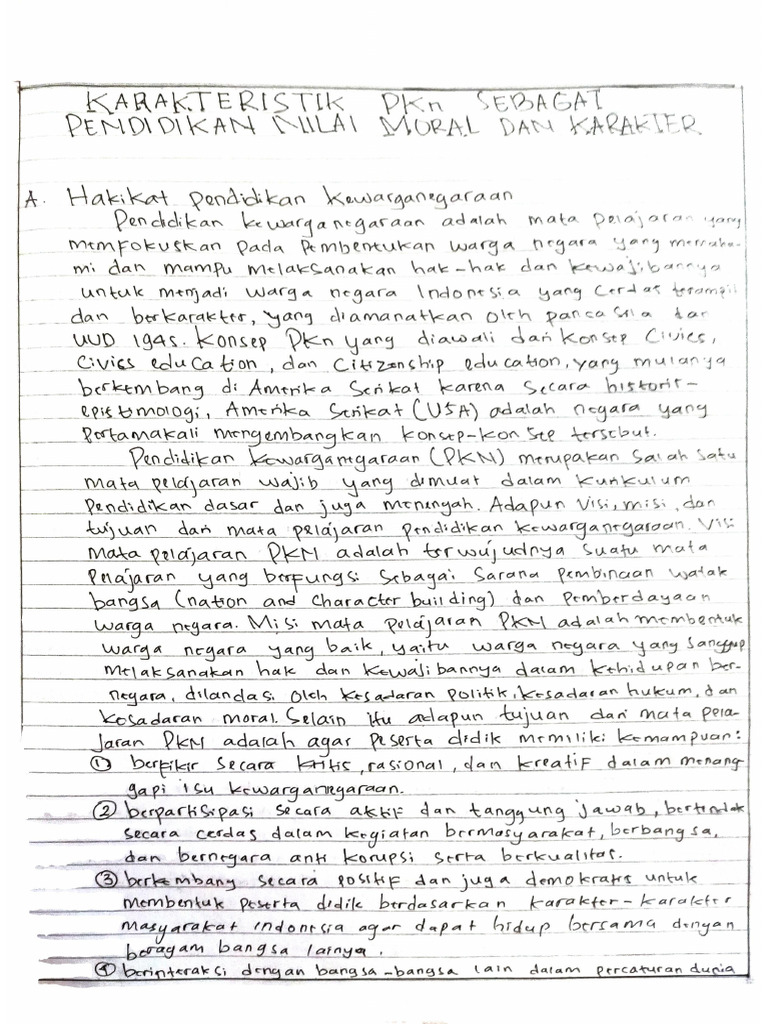 KARAKTERISTIK PKn SEBAGAI
PENDIDIKAN NILAI MORAL DAN KARAKTER
A. Hakikat pendidikan kewarganegaraan
Pendidikan kewarganegaraan adalah mata pelajaran yang
memfokuskan pada pembentukan warga negara yang memaha-
mi dan mampu melaksanakan hak-hak dan kewajibannya
untuk menjadi warga negara Indonesia yang cerdas terampil
dan berkarakter, yang diamanatkan oleh pancasila dan
UUD 1945. Konsep PKn yang diawali dari konsep Civics,
Civics education, dan Citizenship education, yang mulanya
berkembang di Amerika Serikat karena secara historis-
epistimologi, Amerika Serikat (USA) adalah negara yang
pertamakali mengembangkan konsep-konsep tersebut.
Pendidikan kewarganegaraan (PKN) merupakan salah satu
mata pelajaran wajib yang dimuat dalam kurikulum
pendidikan dasar dan juga menengah. Adapun visi, misi, dan
tujuan dari mata pelajaran pendidikan kewarganegaraan. Visi
mata pelajaran PKN adalah terwujudnya suatu mata
pelajaran yang berfungsi sebagai sarana pembinaan watak
bangsa (nation and character building) dan pemberdayaan
warga negara. Misi mata pelajaran PKN adalah membentuk
warga negara yang baik, yaitu warga negara yang sanggup
melaksanakan hak dan kewajibannya dalam kehidupan ber-
negara, dilandasi oleh kesadaran politik, kesadaran hukum, dan
kesadaran moral. Selain itu adapun tujuan dari mata pela-
jaran PKN adalah agar peserta didik memiliki kemampuan:
① berfikir secara kritis, rasional, dan kreatif dalam menang
gapi isu kewarganegaraan.
② berpartisipasi secara aktif dan tanggung jawab, bertindak
secara cerdas dalam kegiatan bermasyarakat, berbangsa,
dan bernegara anti korupsi serta berkualitas.
③ berkembang secara positif dan juga demokratis untuk
membentuk peserta didik berdasarkan karakter-karakter
masyarakat indonesia agar dapat hidup bersama dengan
beragam bangsa lainya.
④ berinteraksi dengan bangsa-bangsa lain dalam percaturan dunia